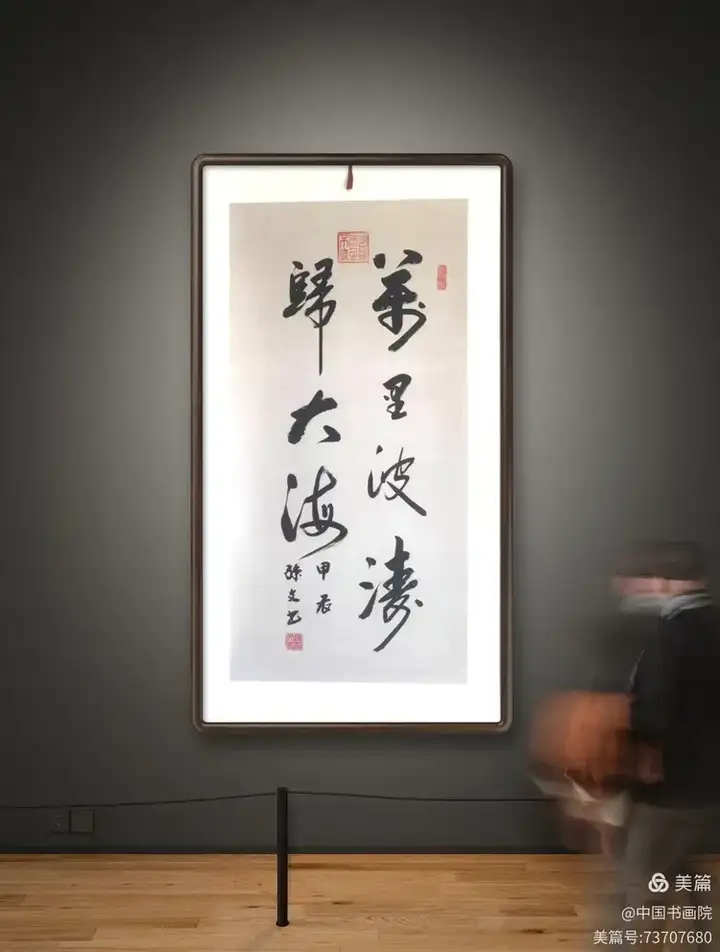 萬里波濤
歸大海
甲辰
文书
美篇
@中国书画院
美篇号:73707680